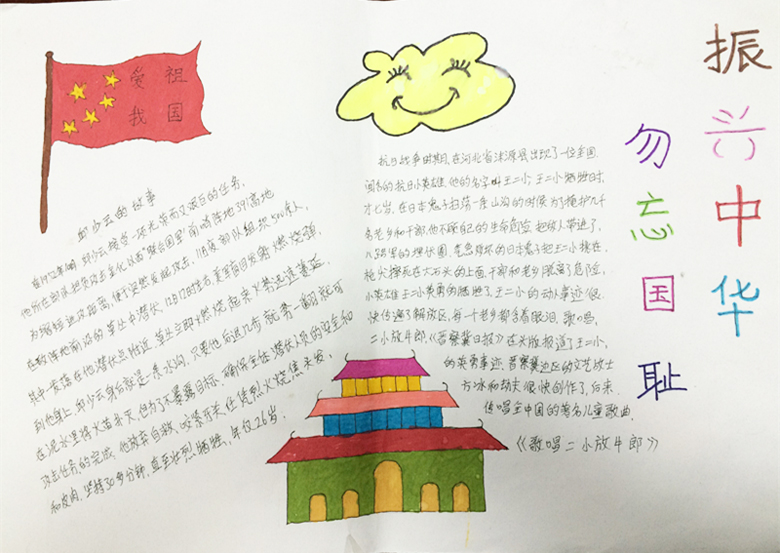 爱祖
我国
邱少云的故事
邱少云接受一项光荣而又艰巨的任务,
他所在部队把作攻击美化以西"联合国军"前哨阵地391高地
为缩短进攻距离,便于突然发起攻击,11月夜部队组织500余人,
在敌阵地前沿的草丛中潜伏,12日12时左右,美军盲目发射燃烧弹,
其中一发落在他潜伏点附近,草丛立即燃烧起来,火势迅速蔓延
到他身上,邱少云身后就是一条水沟,只要他后退几步,就势一翻就可
在泥水里将火苗扑灭,但为了不暴露目标,确保全体潜伏人员的安全和
攻击任务的完成,他放弃自救,咬紧牙关任凭烈火烧焦头发,
和皮肉,坚持30多分钟,直至壮烈牺牲,年仅26岁.
抗日战争时期,在河北省涞源县出现了一位全国
闻名的抗日小英雄,他的名字叫王二小,王二小牺牲时,
才七岁,在日本鬼子扫荡一条山沟的时候,为了掩护几千
名老乡和干部,他不顾自己的生命危险,把敌人带进了,
八路军的埋伏圈,气急败坏的日本鬼子把王二小挑在,
枪尖摔死在大石头的上面,干部和老乡脱离了危险,
小英雄王二小英勇的牺牲了,王二小的动人事迹很
快传遍了解放区,每一个老乡都含着眼泪,歌唱,
二小放牛郎,《晋察冀日报》在头版报道了王二小,
的英勇事迹,晋察冀边区的文艺战士
方冰和劫夫很快创作了,后来
传唱全中国的著名儿童歌曲.
《歌唱二小放牛郎》
振兴中华
勿忘国耻